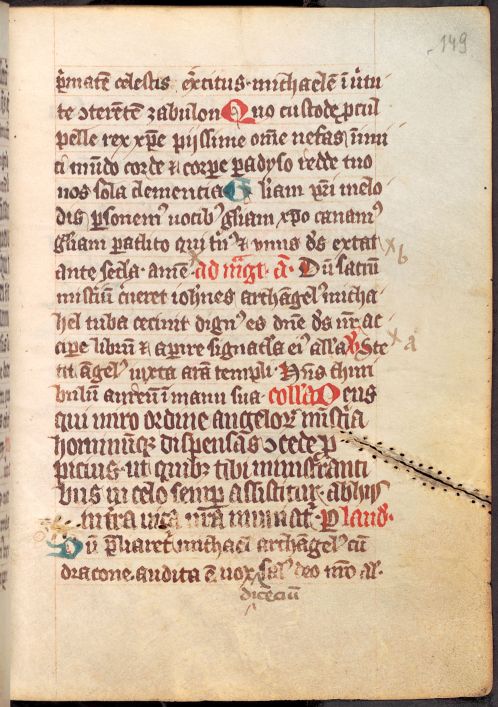 149
pmatē celestis exc̄itus michaelē ī ūtu
te ꝯterētē zabulon Quo custode pcul
pelle rex xp̄e piissime om̄e nefas ūnu
ti mūdo corde ⁊ corpe padyso redde tuo
nos sola clementia Gliam pr̄i melo
dis psonem⁹ vocib⁹ gliam xp̄o canam⁹
gliam paclito qui tn⁹ ⁊ vnus d̄s extat
ante secla amē ad m̄gt a᷑ Dū sacrū b
misteriū c̄neret ioh̄nes archāgel⁹ micha
hel tuba cecinit dign⁹ es dn̄e d̄s nr̄ ac
cipe librū ⁊ apire signacla ei⁹ all'a V̕ Ste a
tit āgel⁹ iuxta arā templi Hn̄s thuri
bulum aureū ī manu sua collā Deus
qui miro ordine angelorꝝ mīstia
hominūqꝫ dispensās ꝯcede p
picius ut quibꝫ tibi ministranti
bus in celo semp assistitur ab hijs
in terra vita nr̄a muniat᷑ P laud'
Dū pliaret᷑ michael archāgel⁹ cū
dracone audita ē vox sal⁹ deo nr̄o al'
dicēciū